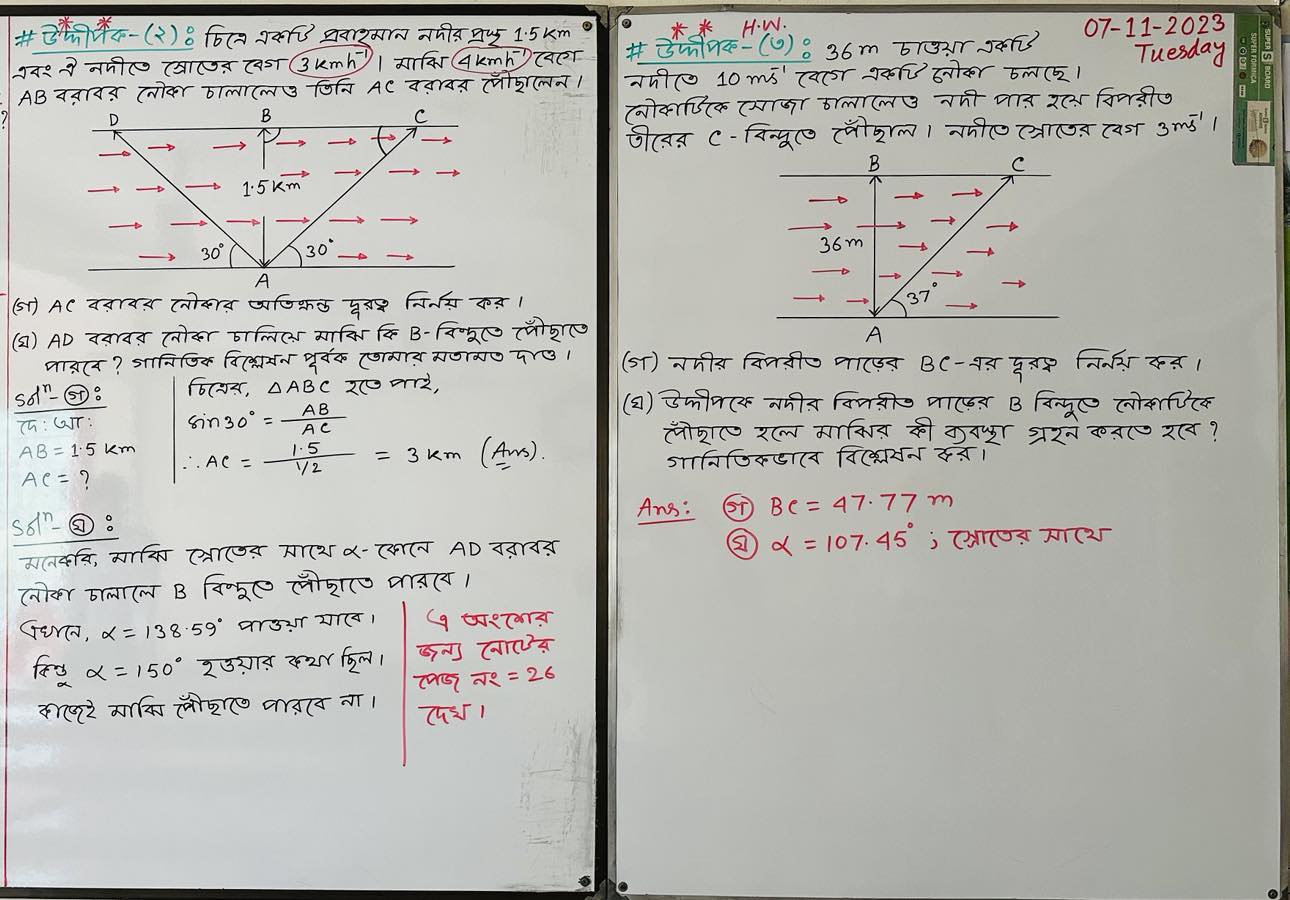 # উদ্দীপক-(২): চিত্রে একটি প্রবাহমান নদীর প্রস্থ 1.5 Km
এবং ঐ নদীতে স্রোতের বেগ 3 kmh⁻¹। মাঝি 4 kmh⁻¹ বেগে
AB বরাবর নৌকা চালালেও তিনি AC বরাবর পৌঁছালেন।
?
D B C
1.5 Km
30° 30°
A
(গ) AC বরাবর নৌকার অতিক্রান্ত দূরত্ব নির্নয় কর।
(ঘ) AD বরাবর নৌকা চালিয়ে মাঝি কি B-বিন্দুতে পৌঁছাতে
পারবে? গানিতিক বিশ্লেষন পূর্বক তোমার মতামত দাও।
Solⁿ-গ:
দে: আ:
AB = 1.5 Km
AC = ?
চিত্রের, △ABC হতে পাই,
Sin30° = AB/AC
∴ AC = 1.5/1/2 = 3 Km (Ans).
Solⁿ-ঘ:
মনেকরি, মাঝি স্রোতের সাথে α-কোনে AD বরাবর
নৌকা চালালে B বিন্দুতে পৌঁছাতে পারবে।
এখানে, α = 138.59° পাওয়া যাবে।
কিন্তু α = 150° হওয়ার কথা ছিল।
কাজেই মাঝি পৌঁছাতে পারবে না।
এ অংশের
জন্য নোটের
পেজ নং = 26
দেখ।
H.W.
07-11-2023
Tuesday
# উদ্দীপক-(৩): 36 m চাওয়া একটি
নদীতে 10 ms⁻¹ বেগে একটি নৌকা চলছে।
নৌকাটিকে সোজা চালালেও নদী পার হয়ে বিপরীত
তীরের C-বিন্দুতে পৌঁছাল। নদীতে স্রোতের বেগ 3 ms⁻¹।
B C
36 m
37°
A
(গ) নদীর বিপরীত পাড়ের BC-এর দূরত্ব নির্নয় কর।
(ঘ) উদ্দীপকে নদীর বিপরীত পাড়ের B বিন্দুতে নৌকাটিকে
পৌঁছাতে হলে মাঝির কী ব্যবস্থা গ্রহন করতে হবে?
গানিতিকভাবে বিশ্লেষন কর।
Ans: গ BC = 47.77 m
ঘ α = 107.45° ; স্রোতের সাথে
SUPER BOARD
SUPER FORMICA